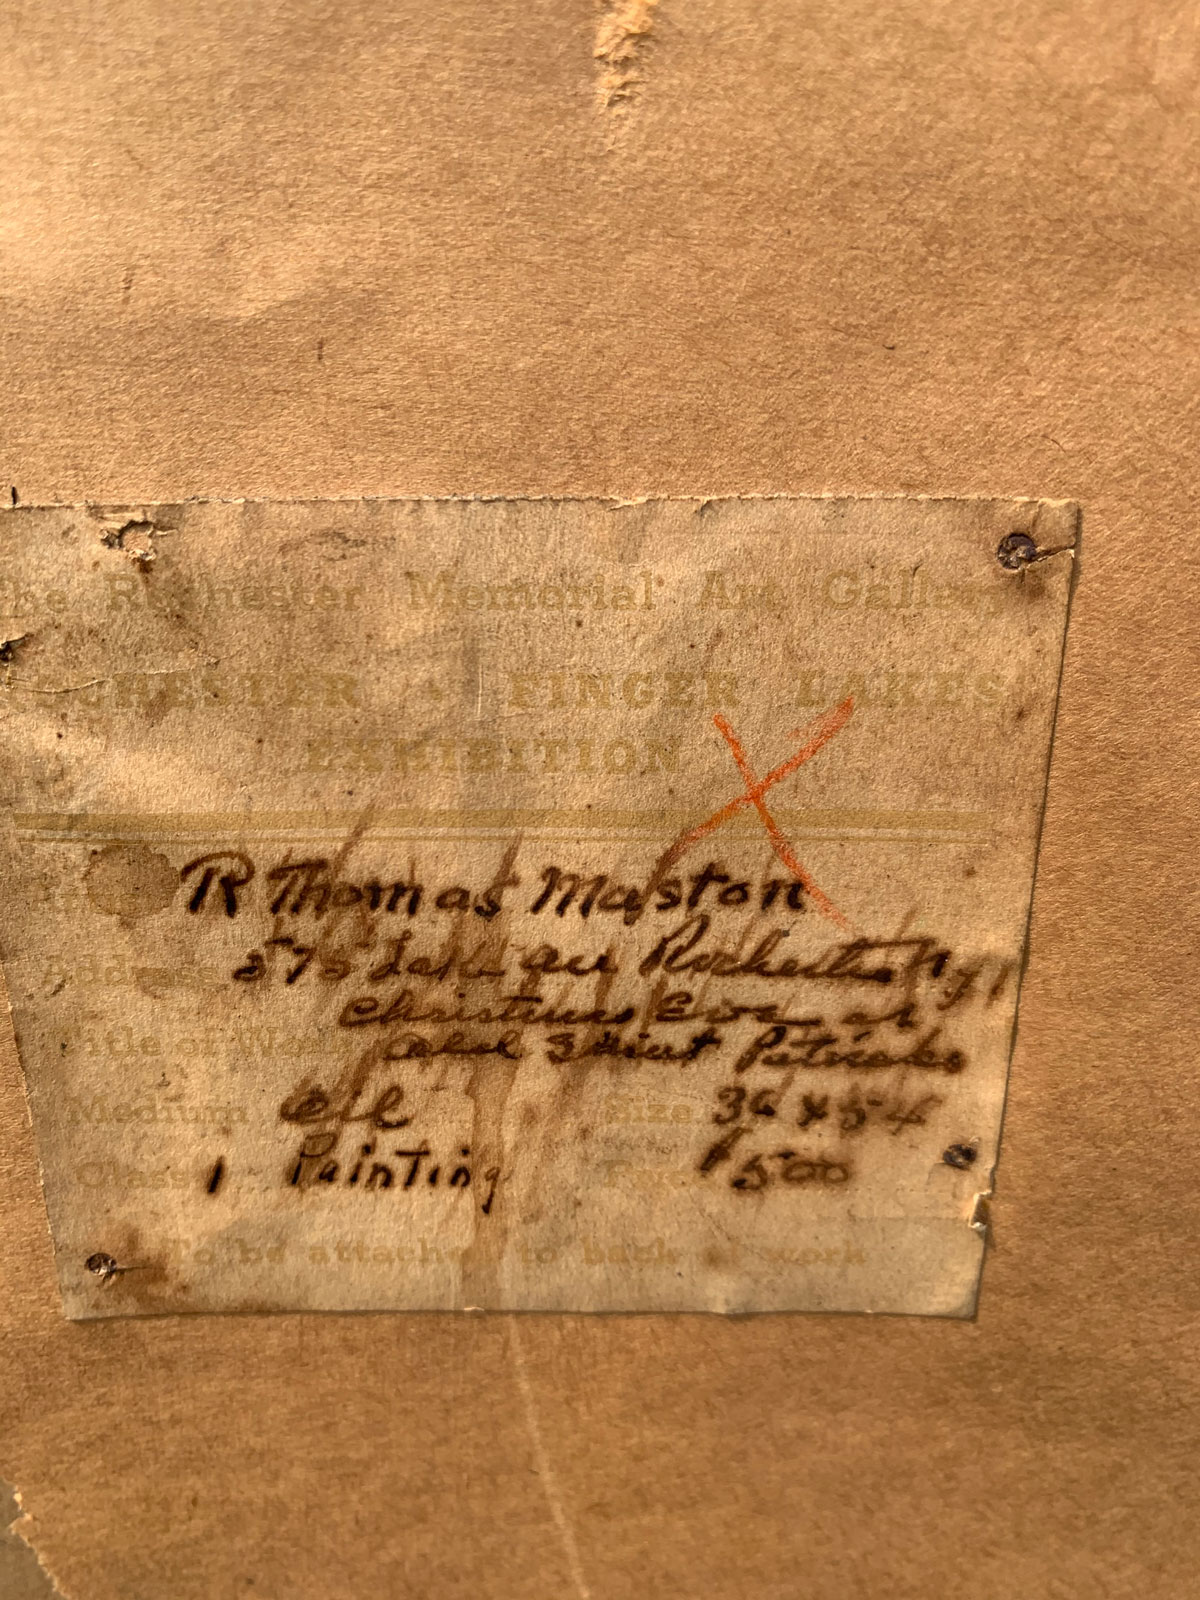 The Rochester Memorial Art Gallery
ROCHESTER - FINGER LAKES
EXHIBITION
R Thomas Maston
Address 575 Lake ave Rochester N y
Christmas Eve at
Title of Work Old Saint Patricks
Medium Oil Size 36 x 54
Class 1 Painting Price $500
To be attached to back of work